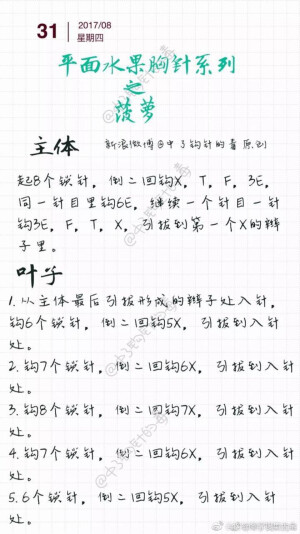 31
2017/08
星期四
平面水果胸针系列
之
菠萝
主体
新浪微博@中了钩针的毒原创
起8个锁针，倒二回钩X，T，F，3E，
同一针目里钩6E，继续一个针目一针
钩3E，F，T，X，引拔到第一个X的辫
子里。
叶子
1.从主体最后引拔形成的辫子处入针，
钩6个锁针，倒二回钩5X，引拔到入针
处。
2.钩7个锁针，倒二回钩6X，引拔到入针
处。
3.钩8个锁针，倒二回钩7X，引拔到入针
处。
4.钩7个锁针，倒二回钩6X，引拔到入针
处。
5.6个锁针，倒二回钩5X，引拔到入针
处。